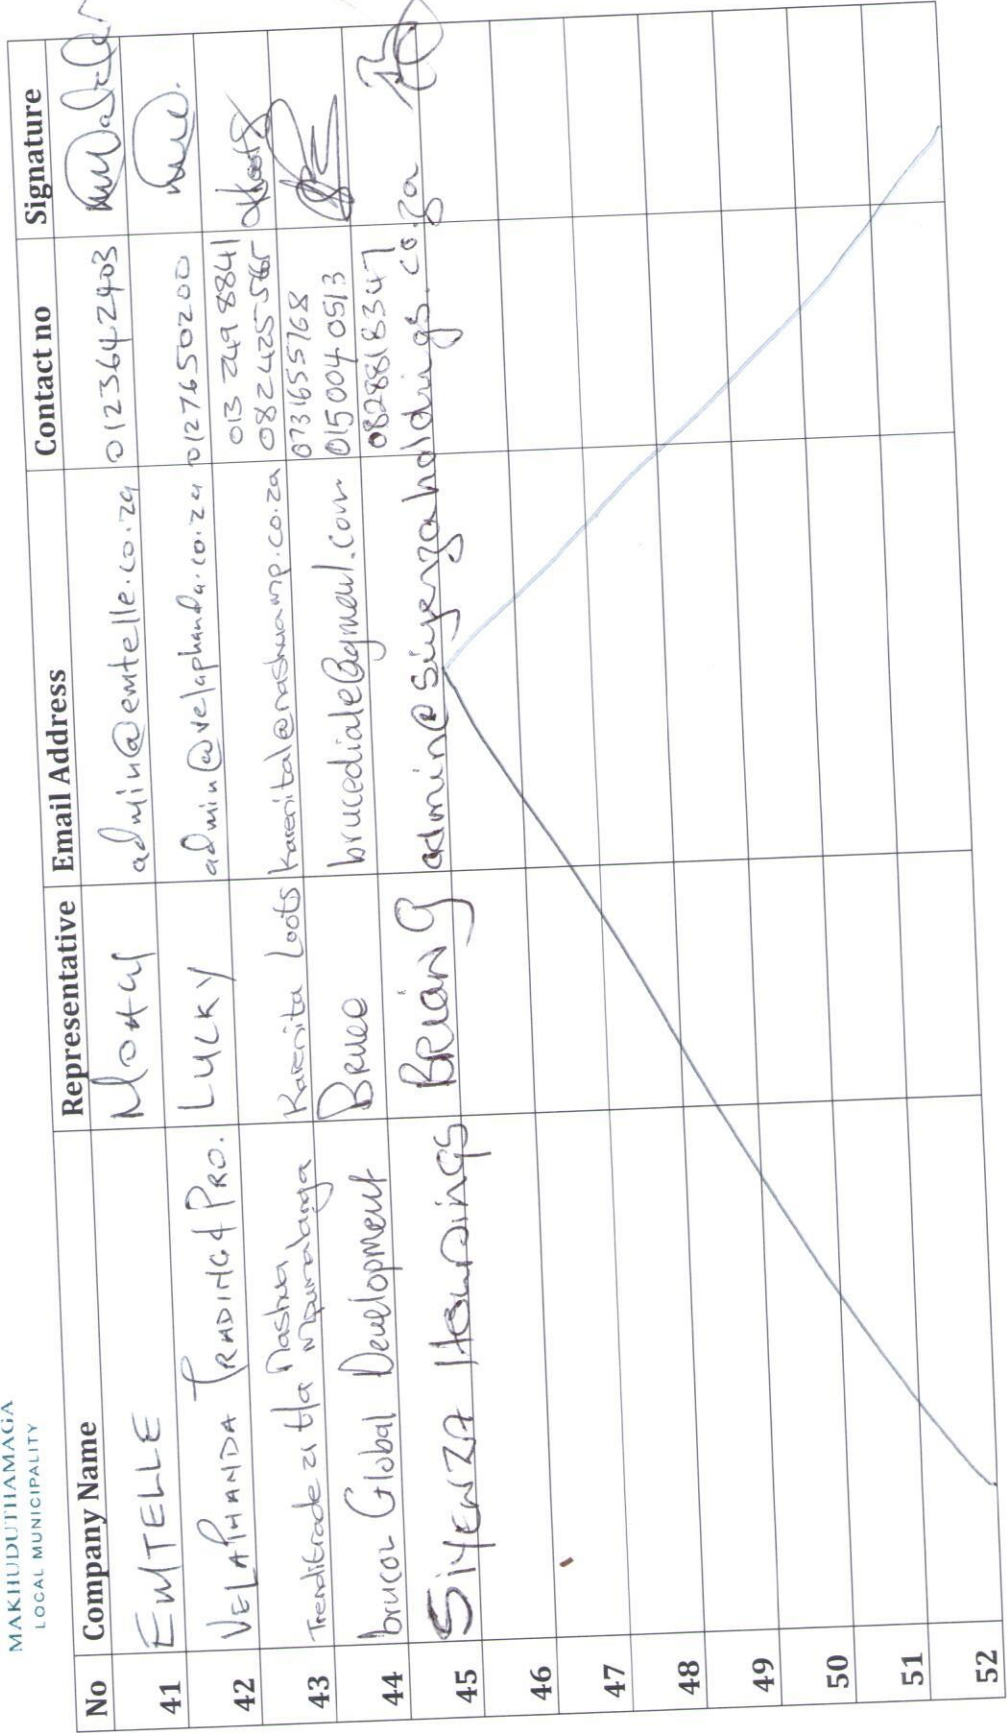 MAKHUDUTHAMAGA
LOCAL MUNICIPALITY
No Company Name Representative Email Address Contact no Signature
41 EMTELLE admin@emtelle.co.za 0123642403
42 VELAPHANDA TRADING & PRO. LUCKY admin@velaphanda.co.za 0127650200
43 Trenditrade 21 t/a Nashua Mpumalanga Karenita Loots karenital@nashuamp.co.za 013 249 8841
082 425 5565
44 brucol Global Development Bruce brucediale@gmail.com 0731655768
015 004 0513
45 SIYENZA HOLDINGS BRIAN G admin@siyenzaholdings.co.za 0828818347
46
47
48
49
50
51
52